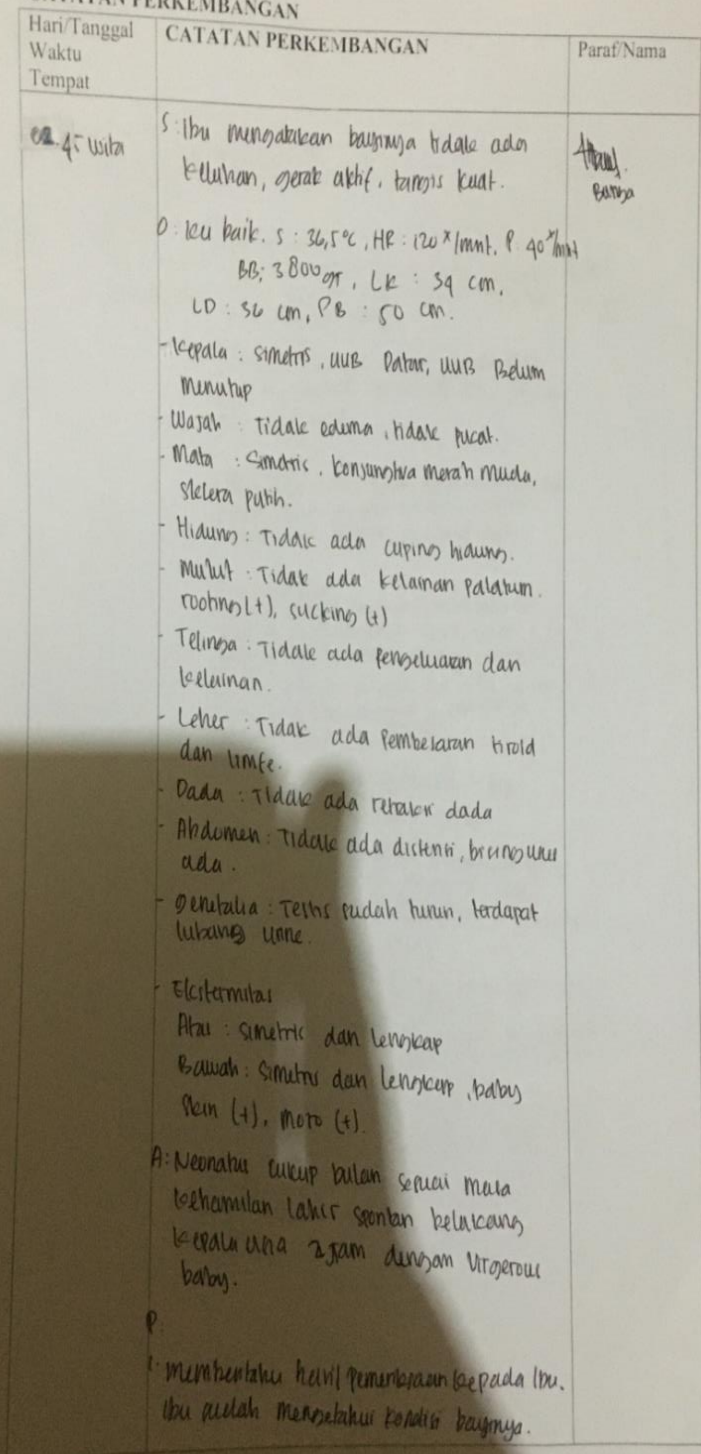 PERKEMBANGAN
Hari/Tanggal
Waktu
Tempat
CATATAN PERKEMBANGAN
Paraf/Nama
45 wita
S : Ibu mengatakan bayinya tidak ada
keluhan, gerak aktif, tangis kuat.
O : ku baik. S : 36,5°C, HR : 120 x/mnt. P. 40 x/mnt
BB : 3800 gr, LK : 34 cm,
LD : 36 cm, PB : 50 cm.
- Kepala : simetris, UUB Datar, UUB Belum
menutup
- Wajah : Tidak edema, tidak pucat.
- Mata : Simetris, konjungtiva merah muda,
sklera putih.
- Hidung : Tidak ada cuping hidung.
- Mulut : Tidak ada kelainan palatum.
rooting (+), sucking (+)
- Telinga : Tidak ada pengeluaran dan
kelainan.
- Leher : Tidak ada Pembesaran tiroid
dan limfe.
- Dada : Tidak ada retaksi dada
- Abdomen : Tidak ada distensi, bising usus
ada.
- genetalia : Testis sudah turun, terdapat
lubang urine.
- Ekstermitas
Atas : simetris dan lengkap
Bawah : Simetris dan lengkap, baby
skin (+), moro (+).
A : Neonatus cukup bulan sesuai masa
kehamilan lahir spontan belakang
kepala usia 2 jam dengan Virgerous
baby.
P :
1. memberitahu hasil pemeriksaan kepada Ibu.
Ibu sudah mengetahui kondisi bayinya.